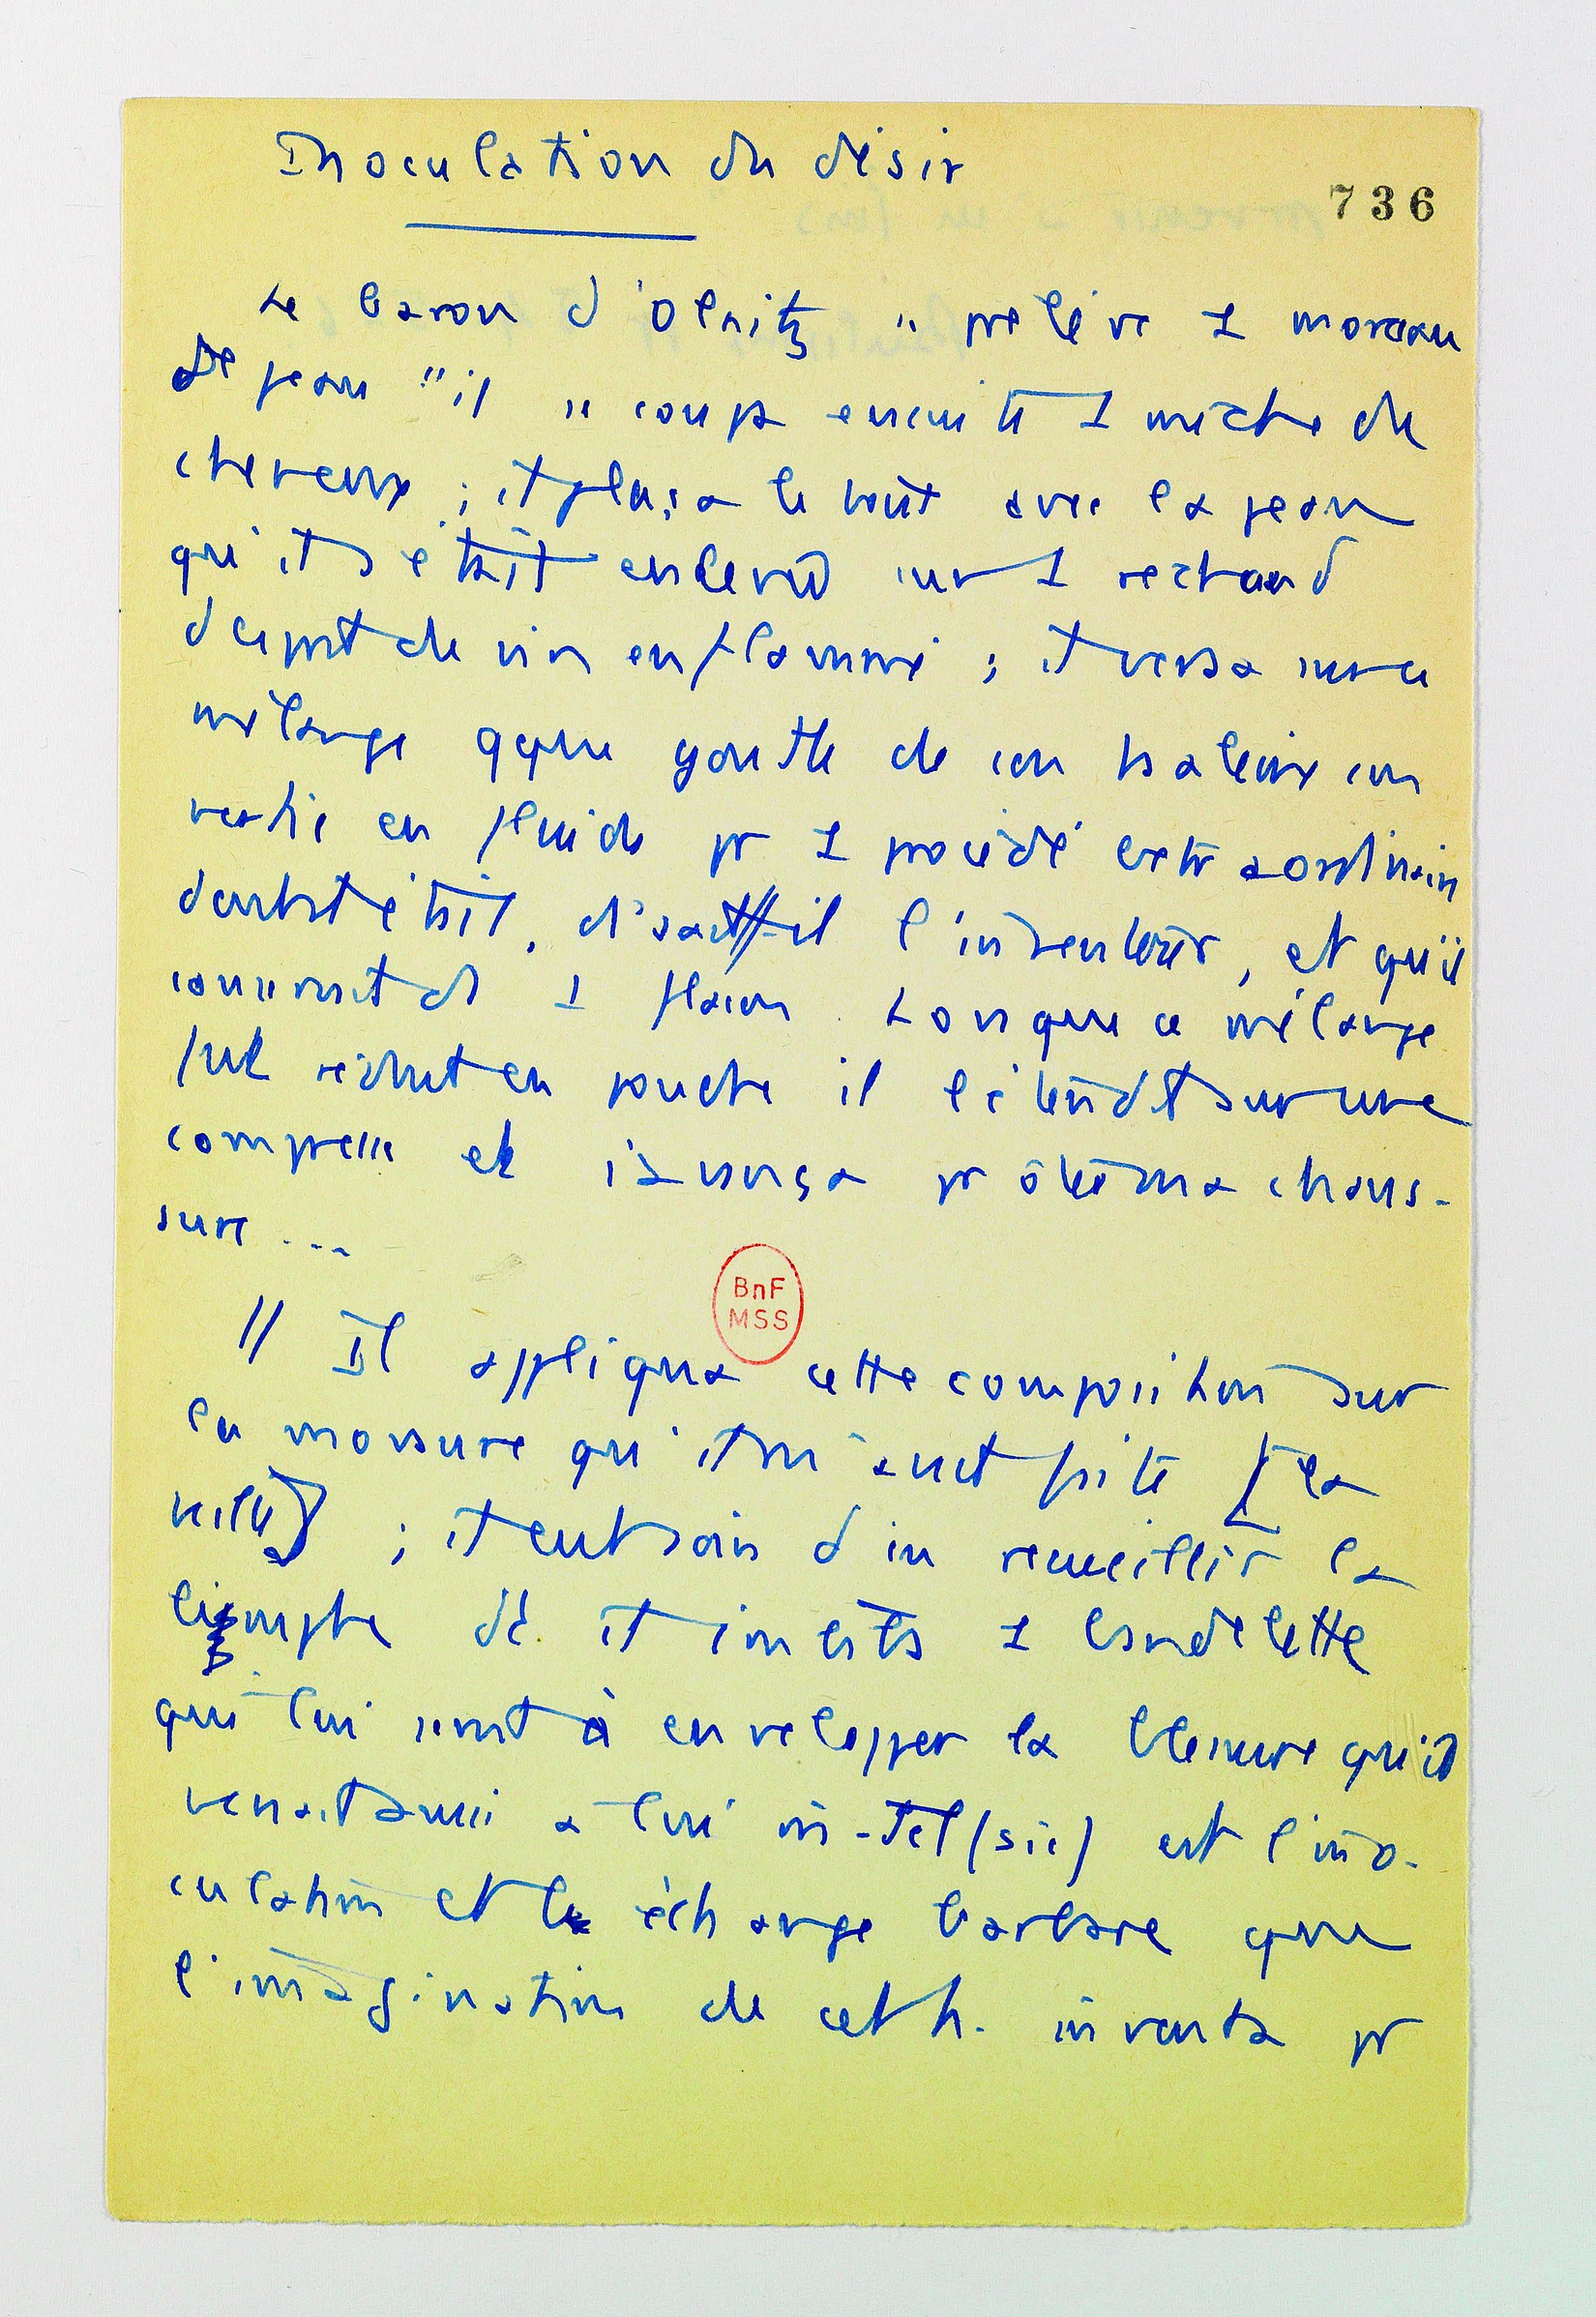 Inoculation du désir
736
Le baron d'Olnitz " prélève 1 morceau
de peau " il " coupa ensuite 1 mèche de
cheveux ; il plaça le tout avec la peau
qu'il s'était enlevée sur 1 réchaud
d'esprit de vin enflammé ; il versa sur ce
mélange qque goutte de son haleine con
vertie en fluide pr 1 procédé extraordinaire
dont il était, disait-il l'inventeur, et qu'il
conservait ds 1 flacon. Lorsque ce mélange
fut réduit en poudre il l'étendit sur une
compresse et s'avança pr ôter ma chaus-
sure ...
// Il appliqua cette composition sur
la morsure qu'il m'avait faite [la
veille] ; il eut soin d'en recueillir la
lymphe dt il imbiba 1 bandelette
qui lui servit à envelopper la blessure qu'il
venait aussi à lui-tel (sic) est l'ino-
culation et le échange barbare que
l'imagination de cet h. inventa pr
BnF
MSS